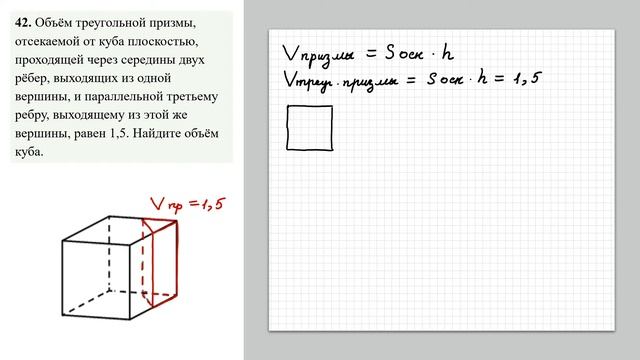 42. Объём треугольной призмы,
отсекаемой от куба плоскостью,
проходящей через середины двух
рёбер, выходящих из одной
вершины, и параллельной третьему
ребру, выходящему из этой же
вершины, равен 1,5. Найдите объём
куба.
Vпр = 1,5
Vпризмы = Sосн · h
Vтреуг. призмы = Sосн · h = 1,5